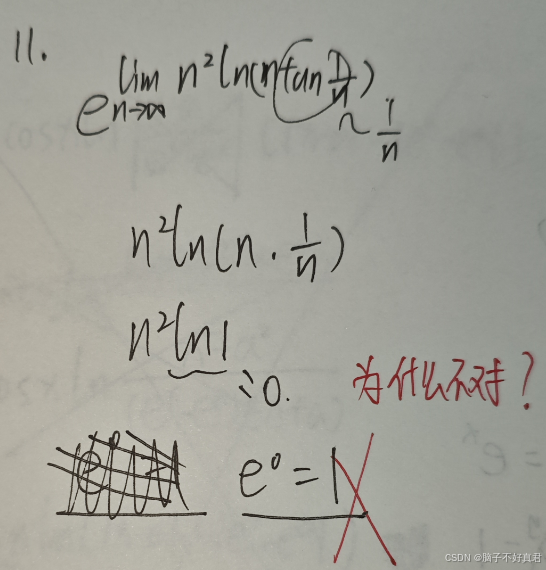 11.
e^{lim_{n→∞} n² ln(n tan 1/n)}
~ 1/n
n² ln(n · 1/n)
n² ln1
= 0.
为什么不对?
e⁰ = 1
CSDN @脑子不好真君